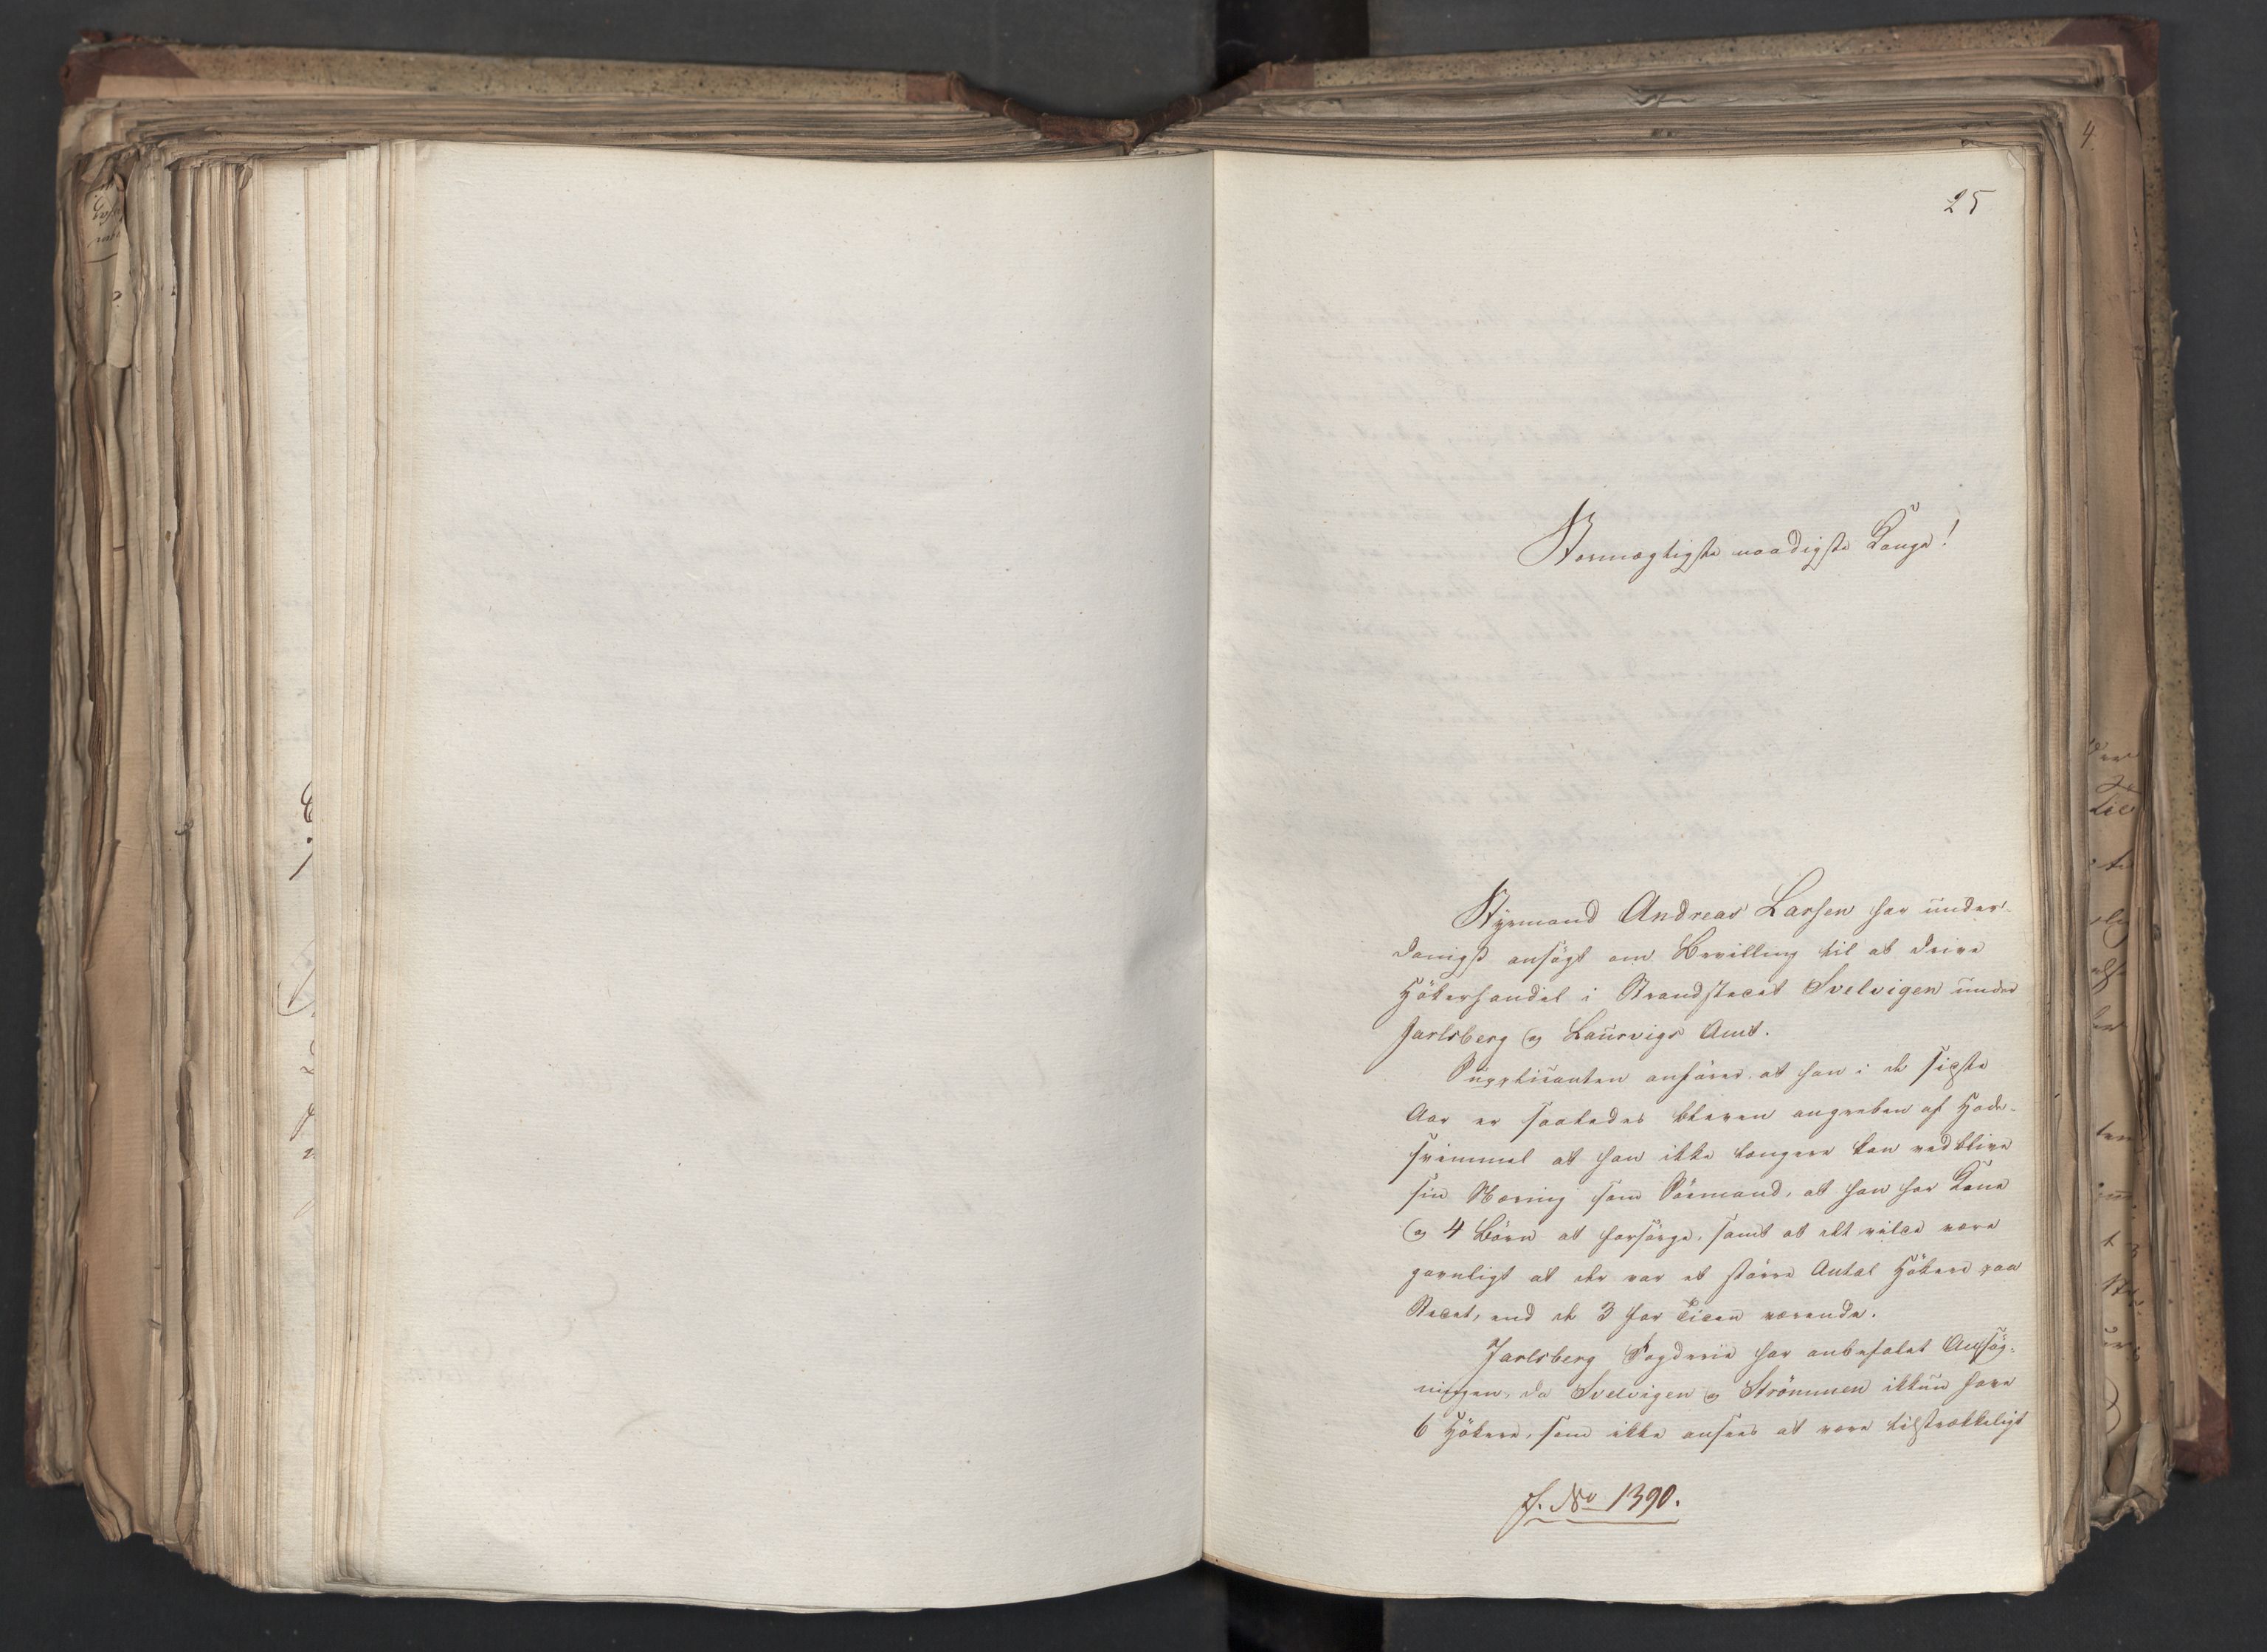 25
Stormægtigste naadigste Konge!
Styrmand Andreas Larsen har under-
danigst ansögt om Bevilling til at drive
Hökerhandel i Strandstedet Svelvigen under
Jarlsberg og Laurvigs Amt.
Supplicanten anförer at han i de sidste
Aar er saaledes bleven angreben af Hoved-
svimmel at han ikke længere kan vedblive
sin Næring som Sömand, at han har Kone
og 4 Börn at forsörge, samt at det vilde være
gavnligt at der var et större Antal Hökere paa
Stedet, end de 3 for Tiden værende.
Jarlsberg Fogderie har anbefalet Ansög-
ningen, da Svelvigen og Strömmen ikkun have
6 Hökere, som ikke ansees at være tilstrækkeligt
J. No 1390.